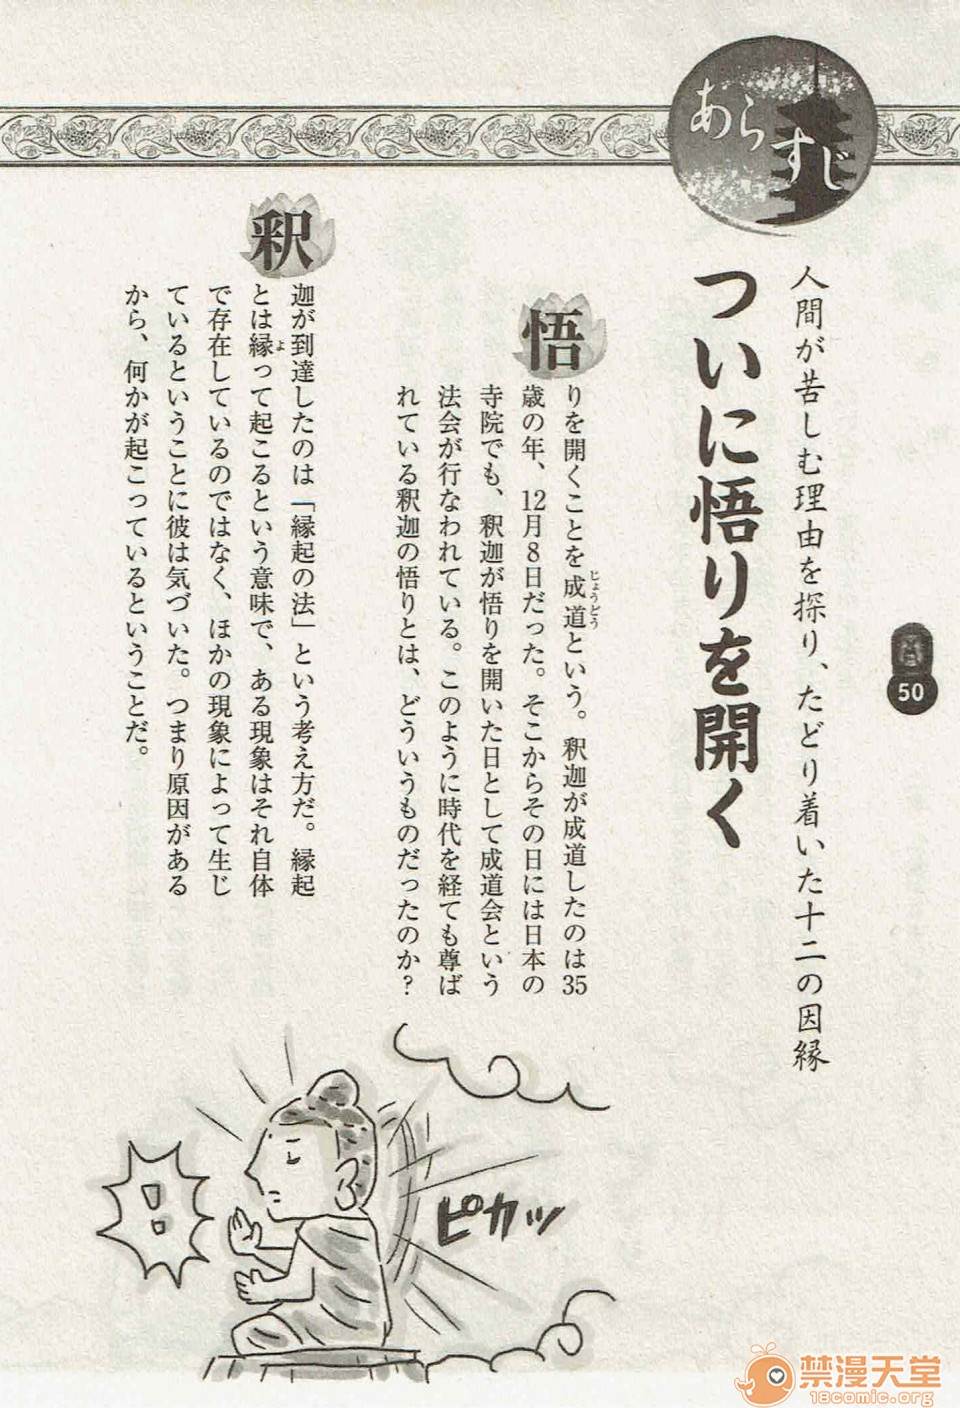 あらすじ
人間が苦しむ理由を探り、たどり着いた十二の因縁
ついに悟りを開く
50
悟りを開くことを成道という。釈迦が成道したのは35
じょうどう
歳の年、12月8日だった。そこからその日には日本の
寺院でも、釈迦が悟りを開いた日として成道会という
法会が行なわれている。このように時代を経ても尊ば
れている釈迦の悟りとは、どういうものだったのか?
釈迦が到達したのは「縁起の法」という考え方だ。縁起
とは縁って起こるという意味で、ある現象はそれ自体
よ
で存在しているのではなく、ほかの現象によって生じ
ているということに彼は気づいた。つまり原因がある
から、何かが起こっているということだ。
ピカッ
!!
禁漫天堂
18comic.org